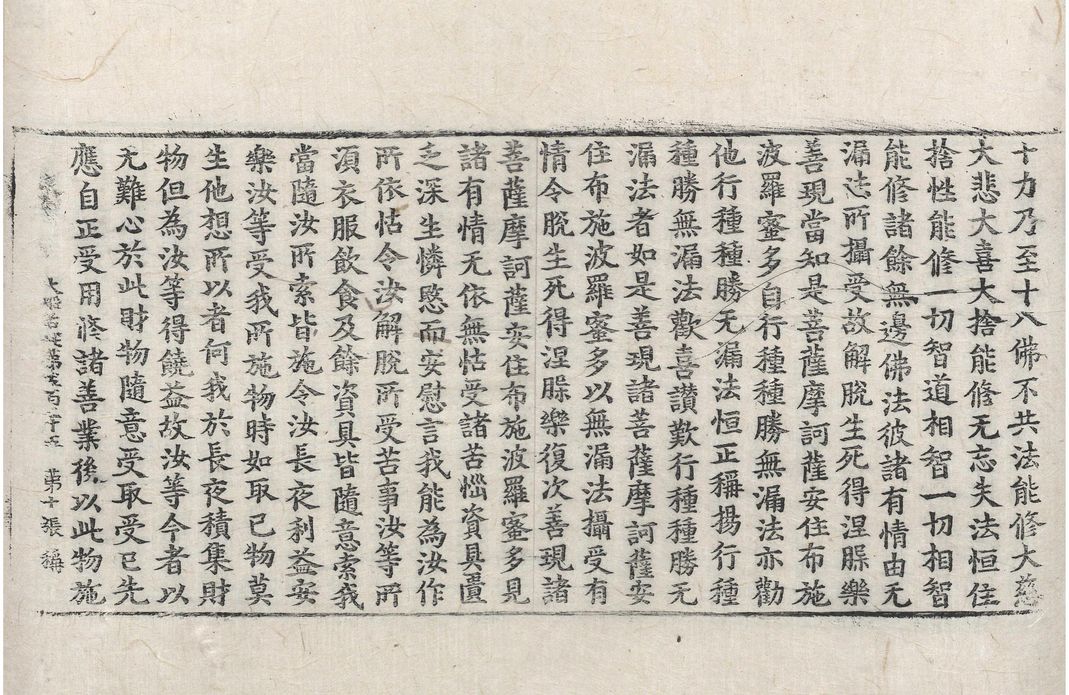 十力乃至十八佛不共法能修大慈
大悲大喜大捨能修无忘失法恒住
捨性能修一切智道相智一切相智
能修諸餘無邊佛法彼諸有情由无
漏法所攝受故解脫生死得涅槃樂
善現當知是菩薩摩訶薩安住布施
波羅蜜多自行種種勝無漏法亦勸
他行種種勝无漏法恒正稱揚行種
種勝無漏法歡喜讚歎行種種勝无
漏法者如是善現諸菩薩摩訶薩安
住布施波羅蜜多以無漏法攝受有
情令脫生死得涅槃樂復次善現諸
菩薩摩訶薩安住布施波羅蜜多見
諸有情无依無怙受諸苦惱資具匱
乏深生憐愍而安慰言我能為汝作
所依怙令汝解脫所受苦事汝等所
須衣服飲食及餘資具皆隨意索我
當隨汝所索皆施令汝長夜利益安
樂汝等受我所施物時如取已物莫
生他想所以者何我於長夜積集財
物但為汝等得饒益故汝等今者以
无難心於此財物隨意受取受已先
應自正受用修諸善業後以此物施
大般若經第三百七十五 第十張 稱